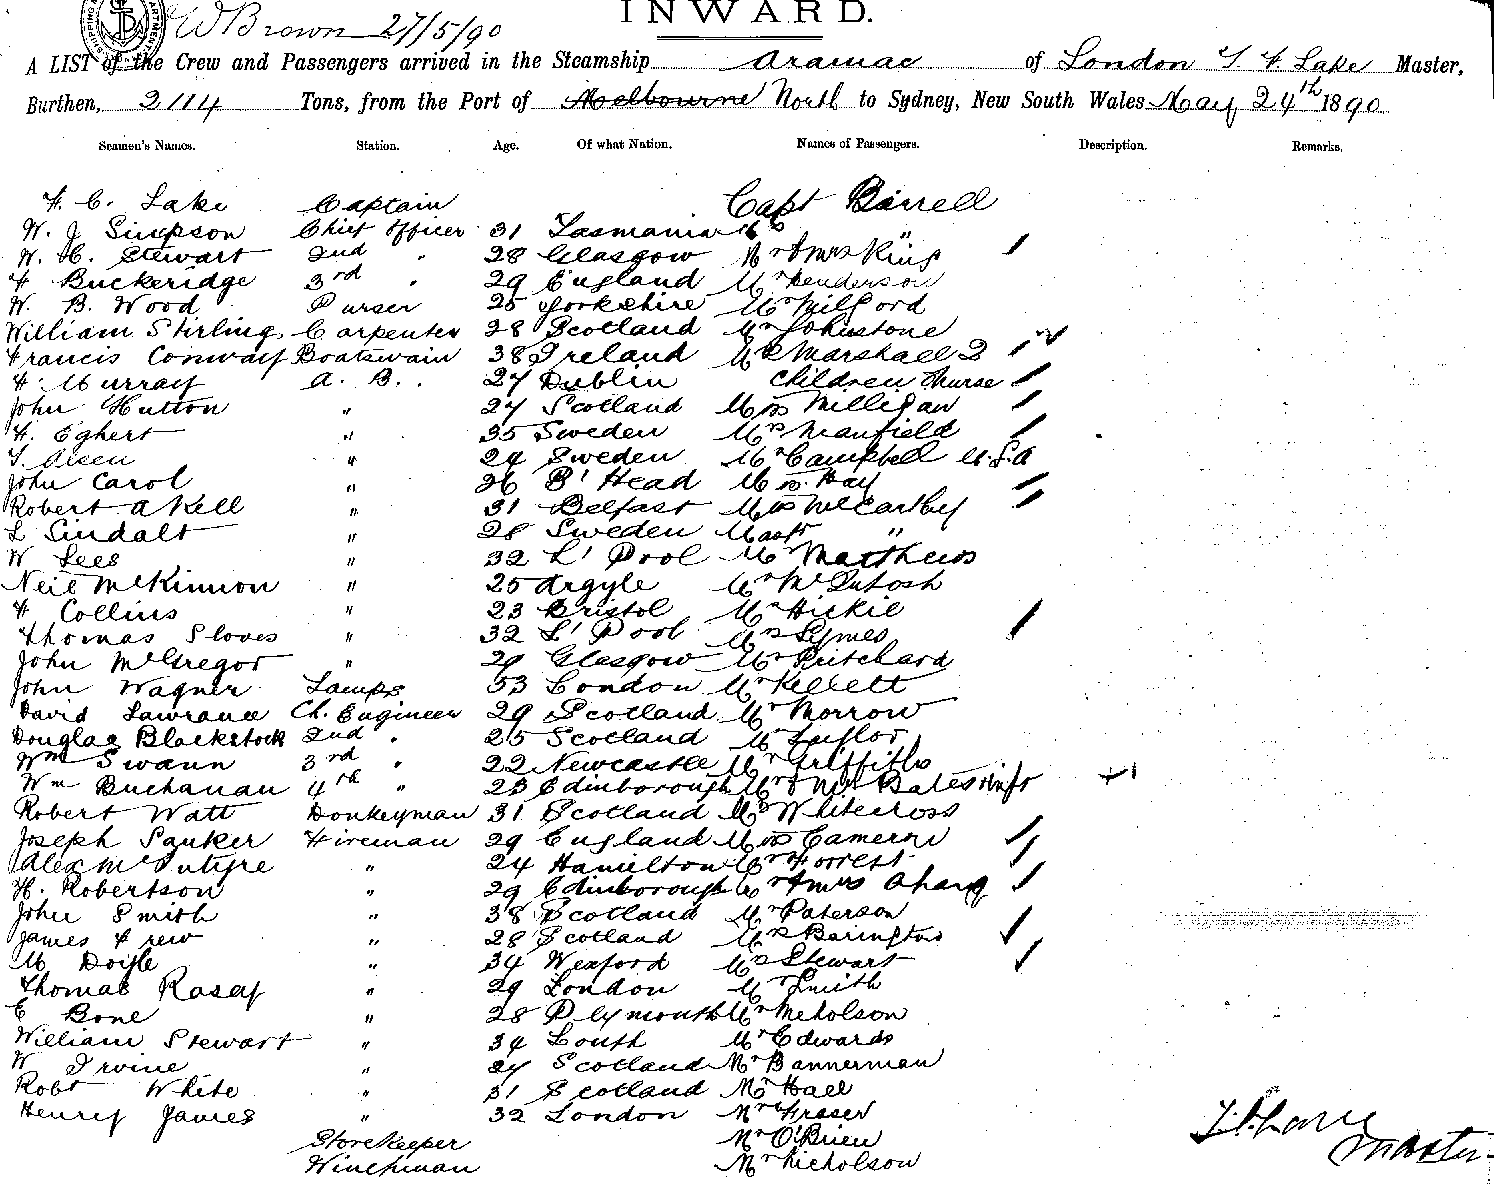 INWARD.
W Brown 27/5/90
A LIST of the Crew and Passengers arrived in the Steamship Aramac of London Lake Master,
Burthen, 2114 Tons, from the Port of Melbourne North to Sydney, New South Wales May 24th 1890
Seamen's Names. Station. Age. Of what Nation. Names of Passengers. Description. Remarks.
Lake Captain Capt Birrell
W. J Simpson Chief Officer 31 Tasmania "
W. H. Stewart 2nd " 28 Glasgow Mr & Mrs King
F Buckeridge 3rd " 29 England Mr Henderson
W. B. Wood Purser 25 Yorkshire Mr Milford
William Stirling Carpenter 28 Scotland Mr Johnstone
Francis Conway Boatswain 38 Ireland Mrs Marshall 2
F. Murray A. B. 27 Dublin Children & nurse
John Hutton " 27 Scotland Miss Milligan
F. Eghert " 35 Sweden Mrs Manfield
" 24 Sweden Mr Campbell U.S.A
John Carol " 26 B' Head Miss Hay
Robert A Kell " 31 Belfast Miss McCarthy
L Lindalt " 28 Sweden Mast "
W Lees " 32 L' Pool Mr Matthews
Neil McKinnon " 25 Argyle Mr McIntosh
F Collins " 23 Bristol Mr Hickie
Thomas Sloves " 32 L' Pool Mrs Symes
John McGregor " 29 Glasgow Mr Pritchard
John Wagner Lamps 53 London Mr Kellett
David Lawrance Ch. Engineer 29 Scotland Mr Morrow
Douglas Blackstock 2nd " 25 Scotland Mr Taylor
Wm Swann 3rd " 22 Newcastle Mr Griffiths
Wm Buchanan 4th " 23 Edinborough Mr & Mrs Bates
Robert Watt Donkeyman 31 Scotland Mrs Whitecross
Joseph Fireman 29 England Miss Cameron
Alex McIntyre " 24 Hamilton Mr Forrest
H. Robertson " 29 Edinborough Mr & Mrs
John Smith " 38 Scotland Mr Paterson
James Frew " 28 Scotland Mrs Barington
M Doyle " 34 Wexford Mrs Stewart
Thomas " 29 London Mr Smith
E Bone " 28 Plymouth Mr Nicholson
William Stewart " 34 Louth Mr Edwards
W Irvine " 27 Scotland Mr Bannerman
Robt White " 31 Scotland Mr Hall
Henry James " 32 London Mr Fraser
Storekeeper Mr O'Brien
Winchman Mr Nicholson
Master